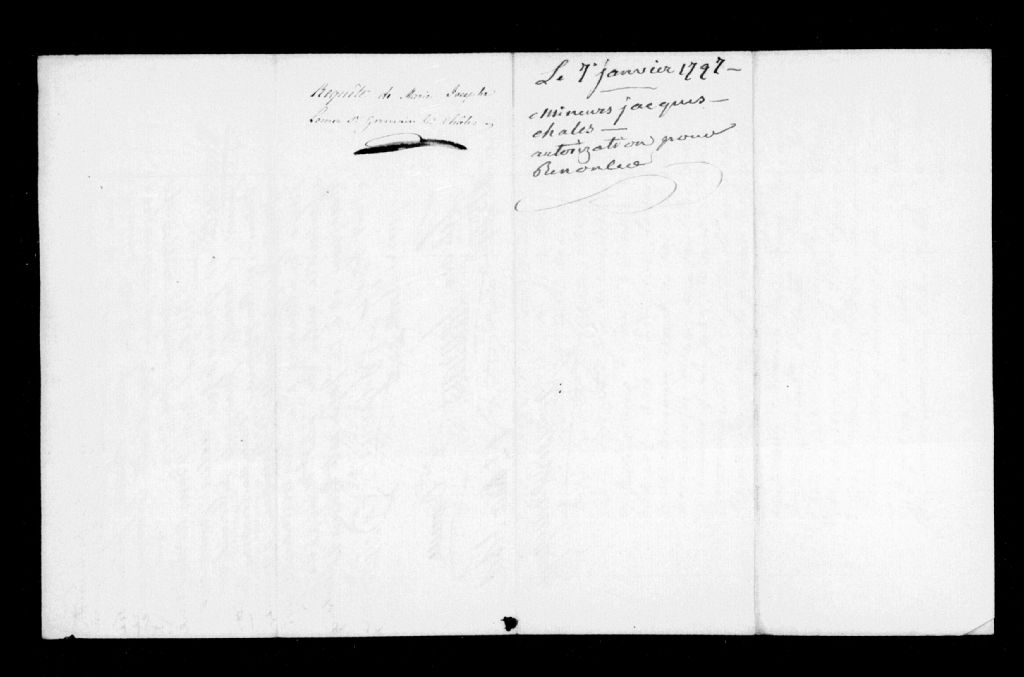 Requête de Marie Josephe
St Germain
Le 7e janvier 1797 –
mineurs jacques –
chales –
autorization pour
Renoncer